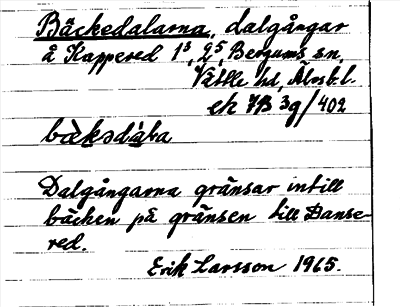 Bäckedalarna, dalgångar
å Kappered 1³, 2⁵, Bergums sn,
Vättle hd, Älvsb. l.
ek 7B 3g/402
bäksdàɫa
Dalgångarna gränsar intill
bäcken på gränsen till Danse-
red.
Erik Larsson 1965.